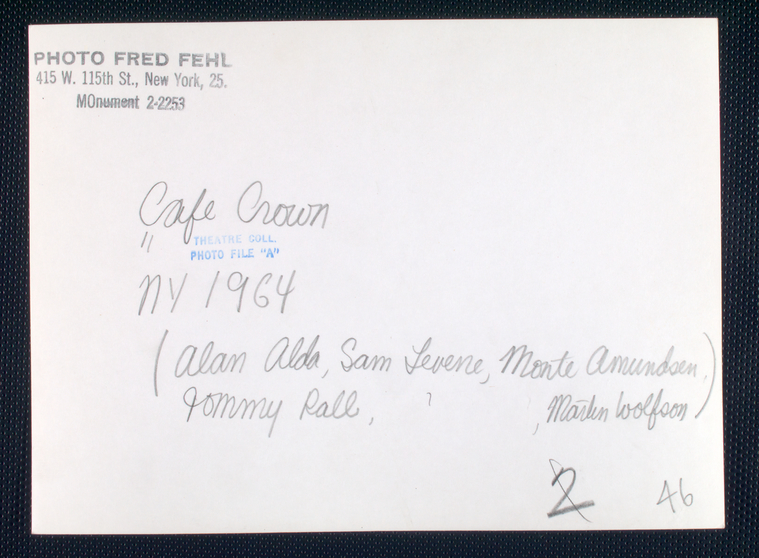 PHOTO FRED FEHL
415 W. 115th St., New York, 25.
MOnument 2-2253
Cafe Crown
"
THEATRE COLL.
PHOTO FILE "A"
NY 1964
(Alan Alda, Sam Levene, Monte Amundsen,
Tommy Rall, ? , Martin Wolfson)
2
46